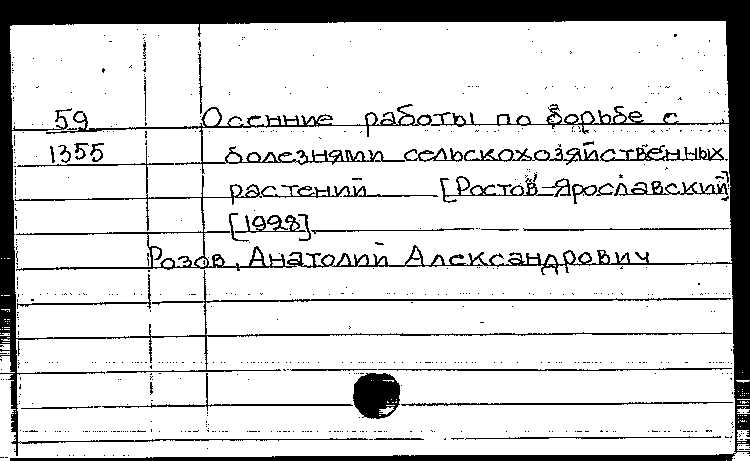 59 Осенние работы по борьбе с
1355 болезнями сельскохозяйственных
растений. [Ростов-Ярославский]
[1928].
Розов, Анатолий Александрович